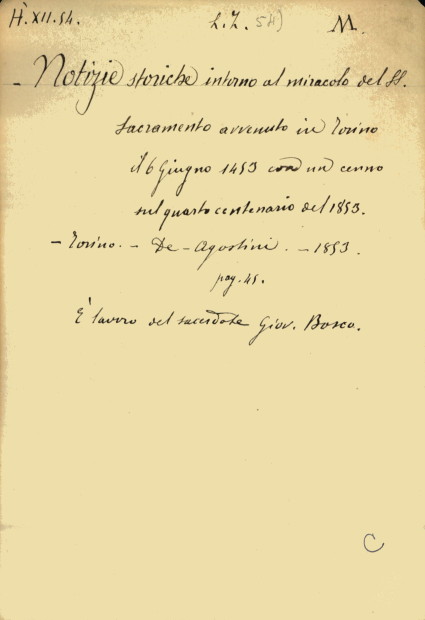 H. XII. 54. L. Z. 54) M.
- Notizie storiche intorno al miracolo del SS.
Sacramento avvenuto in Torino
il 6 Giugno 1453 con un cenno
sul quarto centenario del 1853.
- Torino. - De-Agostini. - 1853.
pag. 45.
È lavoro del sacerdote Giov. Bosco.
C